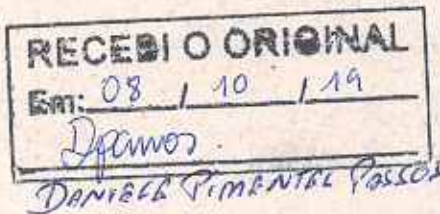 RECEBI O ORIGINAL
Em: 08 / 10 / 19
DPassos.
DANIELA PIMENTEL PASSOS